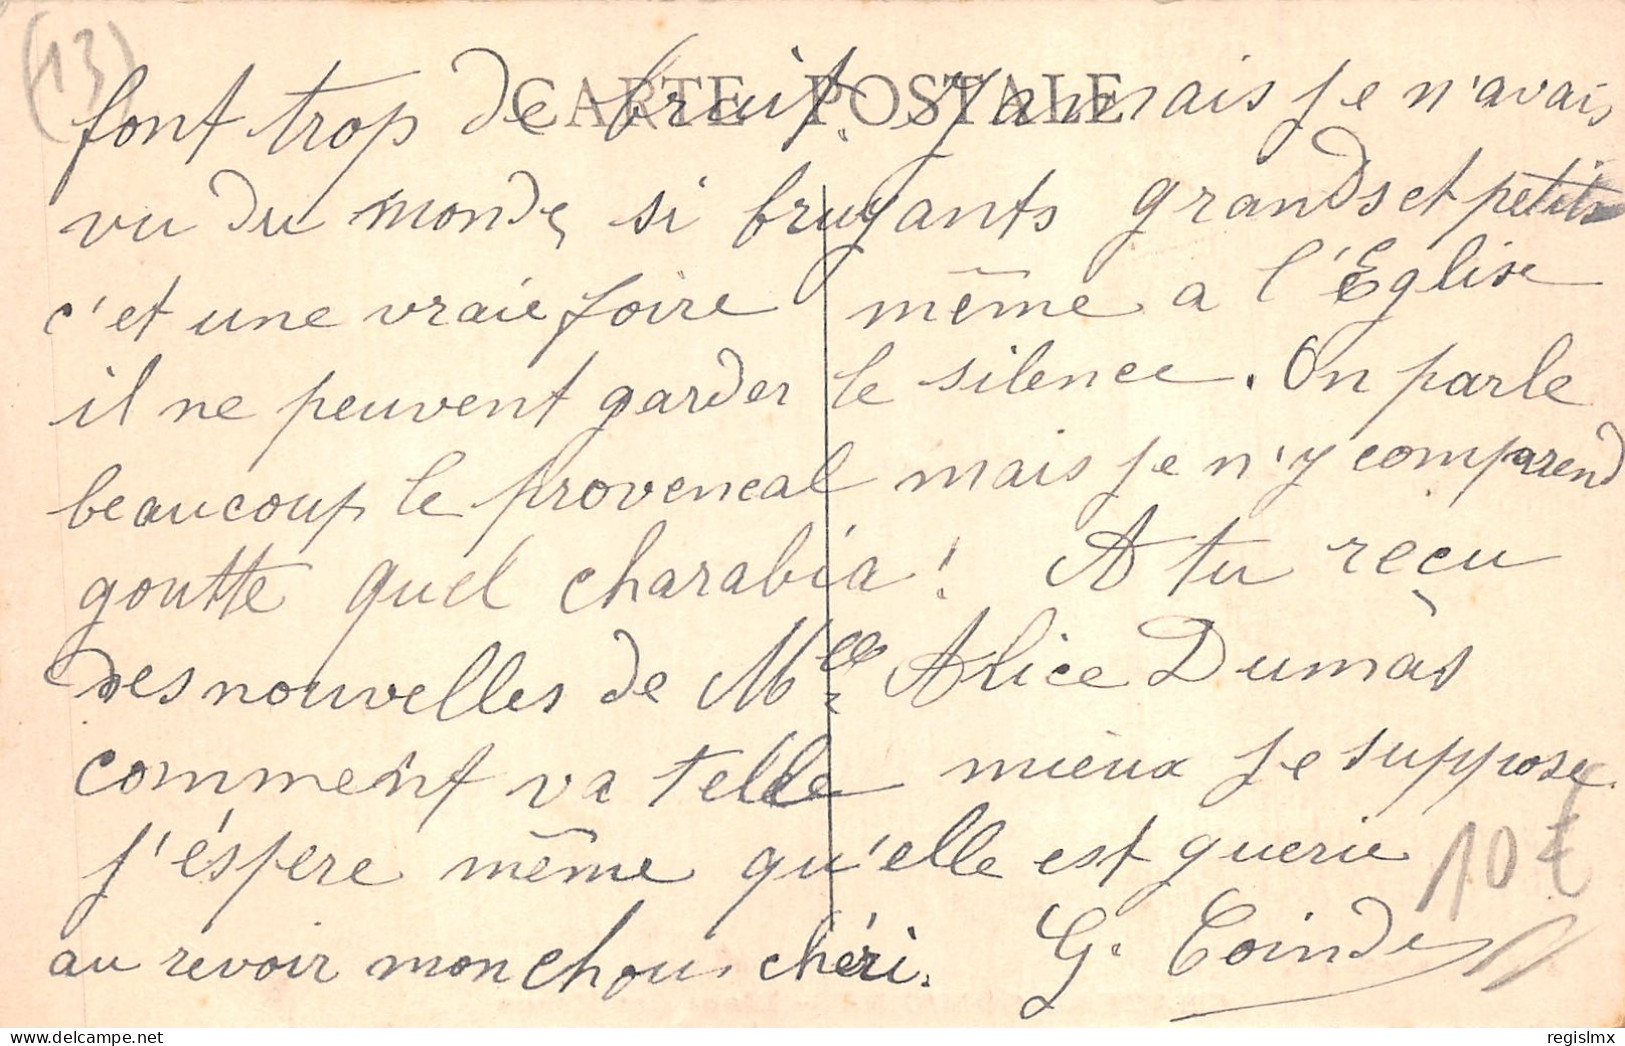 (13)
CARTE POSTALE
font trop de bruit. Jamais je n'avais
vu du monde si bruyants grands et petits
c'et une vraie foire même a l'Eglise
il ne peuvent garder le silence. On parle
beaucoup le provencal mais je n'y comprend
goutte quel charabia ! A tu reçu
des nouvelles de Mlle Alice Dumas
comment va telle mieux je suppose
j'éspere même qu'elle est guerie
10 €
au revoir mon chou chéri. G. Coindes
regislmx
www.delcampe.net